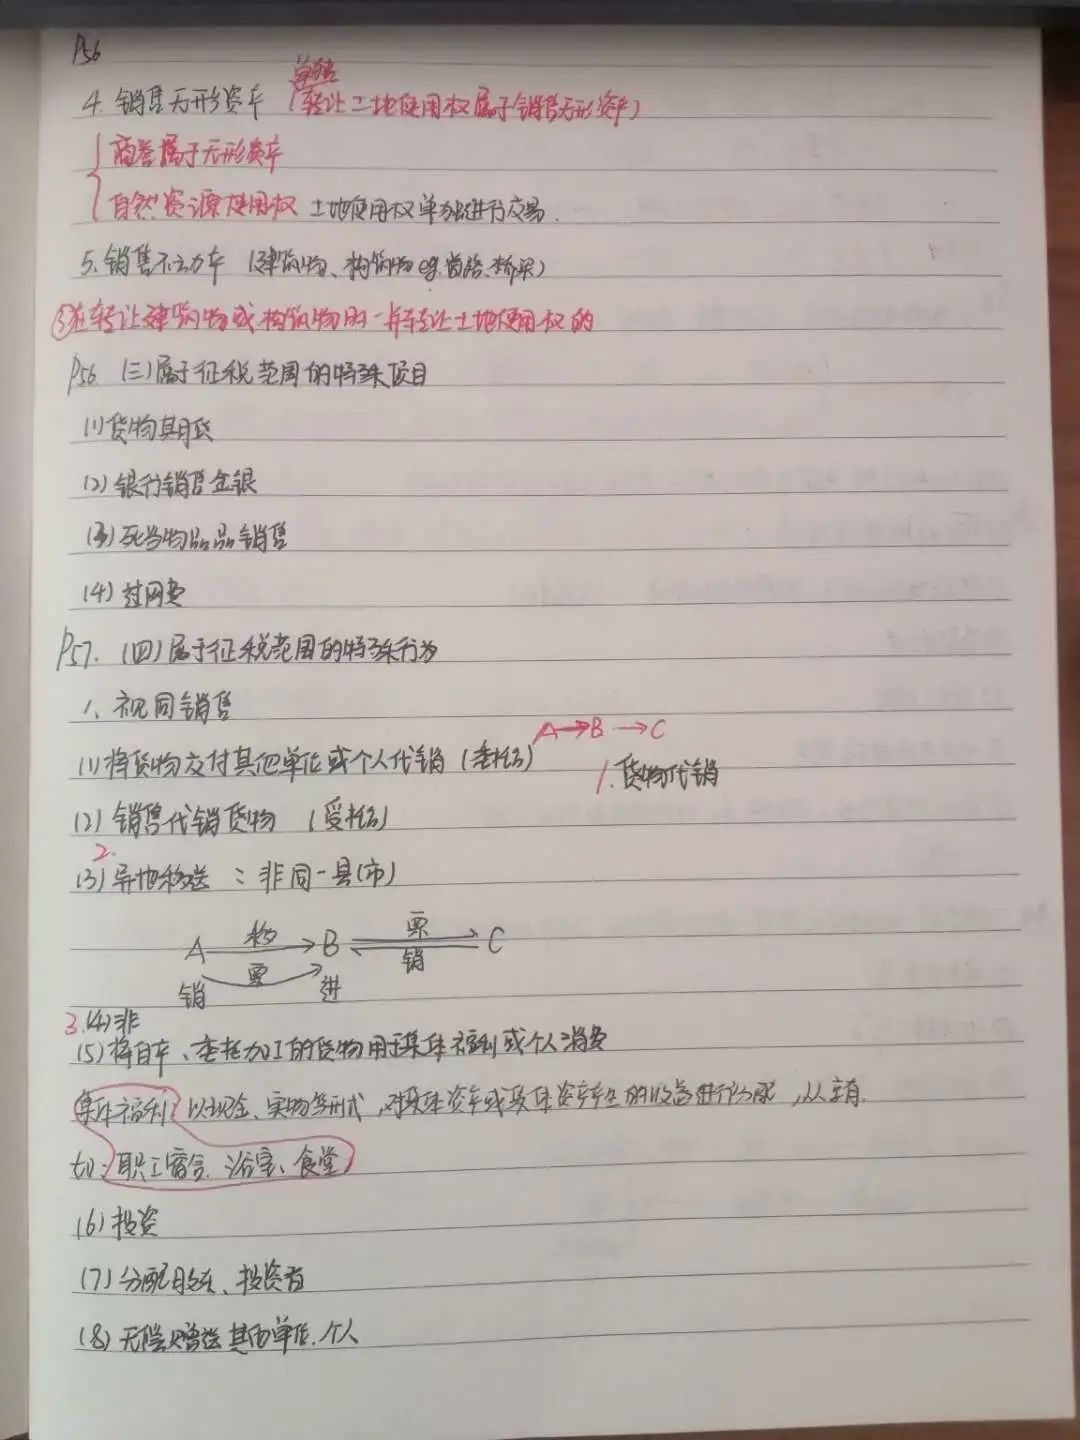 P56
单独
4. 销售无形资产 (转让土地使用权属于销售无形资产)
商誉属于无形资产
自然资源使用权 土地使用权单独进行交易.
5. 销售不动产 (建筑物、构筑物 eg. 道路、桥梁)
③在转让建筑物或构筑物时一并转让土地使用权的
P56. (三)属于征税范围的特殊项目
(1)货物期货
(2)银行销售金银
(3)死当物品销售
(4)过网费
P57. (四)属于征税范围的特殊行为
1、视同销售
A→B→C
(1)将货物交付其他单位或个人代销 (委托) 1.货物代销
(2)销售代销货物 (受托)
2.
(3)异地移送 : 非同一县(市)
A 移 B 票 C
票 销
销 进
3.(4)非
(5)将自产、委托加工的货物用于集体福利或个人消费
集体福利 以现金、实物等形式,对集体资产或集体资产产生的收益进行分配,
如: 职工宿舍、浴室、食堂
(6)投资
(7)分配股东、投资者
(8)无偿赠送其他单位.个人